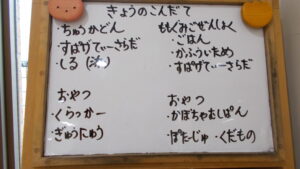 きょうのこんだて
・ちゅうかどん
・すぱげてぃーさらだ
・しる
ももぐみごぜんしょく
・ごはん
・かふういため
・すぱげてぃーさらだ
おやつ
・くらっかー
・ぎゅうにゅう
おやつ
・かぼちゃむしぱん
・ぽたーじゅ ・くだもの